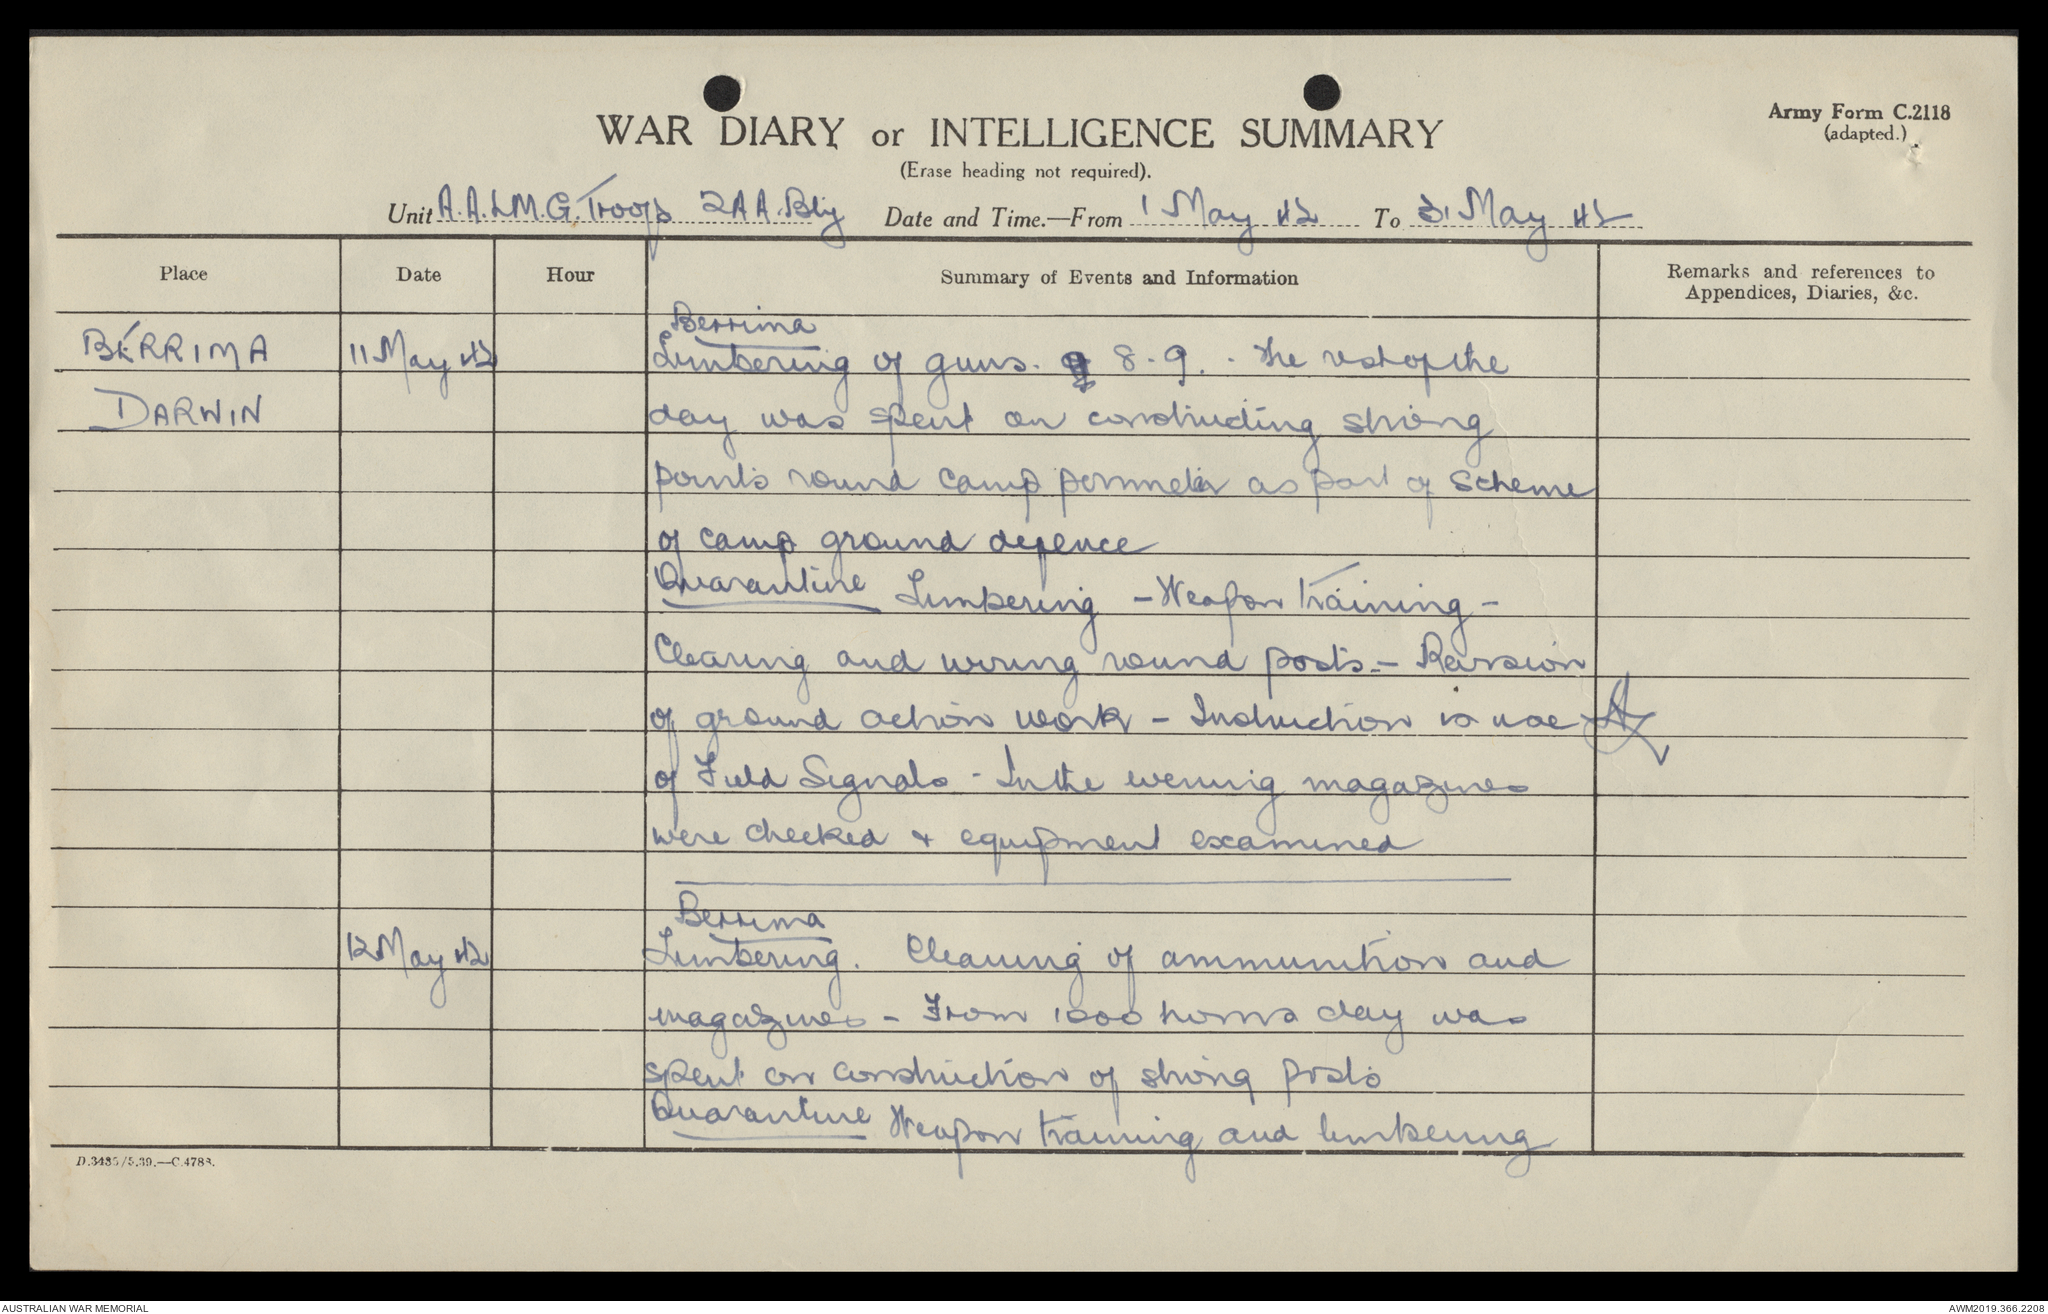 Army Form C.2118
(adapted.)
WAR DIARY or INTELLIGENCE SUMMARY
(Erase heading not required).
Unit A.A.L.M.G. Troops 2 A A. Bty Date and Time.—From 1 May 42 To 31 May 42
Place Date Hour Summary of Events and Information Remarks and references to
Appendices, Diaries, &c.
Berrima
BERRIMA 11 May 42 Limbering of guns. 8.9. . The rest of the
DARWIN day was spent on constructing strong
points round camp perimeter as part of scheme
of camp ground defence
Quarantine Limbering - Weapon Training -
Clearing and wiring round posts. - Revision
of ground action work - Instruction in use
of Field Signals - In the evening magazines
were checked + equipment examined
Berrima
12 May 42 Limbering. Cleaning of ammunition and
magazines - From 1000 hours day was
spent on construction of strong posts
Quarantine Weapon training and limbering
D.3435/5.39.—C.4783.
AUSTRALIAN WAR MEMORIAL AWM2019.366.2208